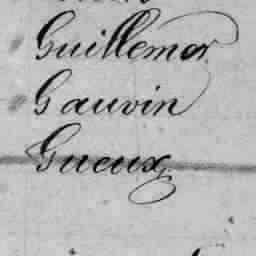 Guillemor
Gauvin
Gueux